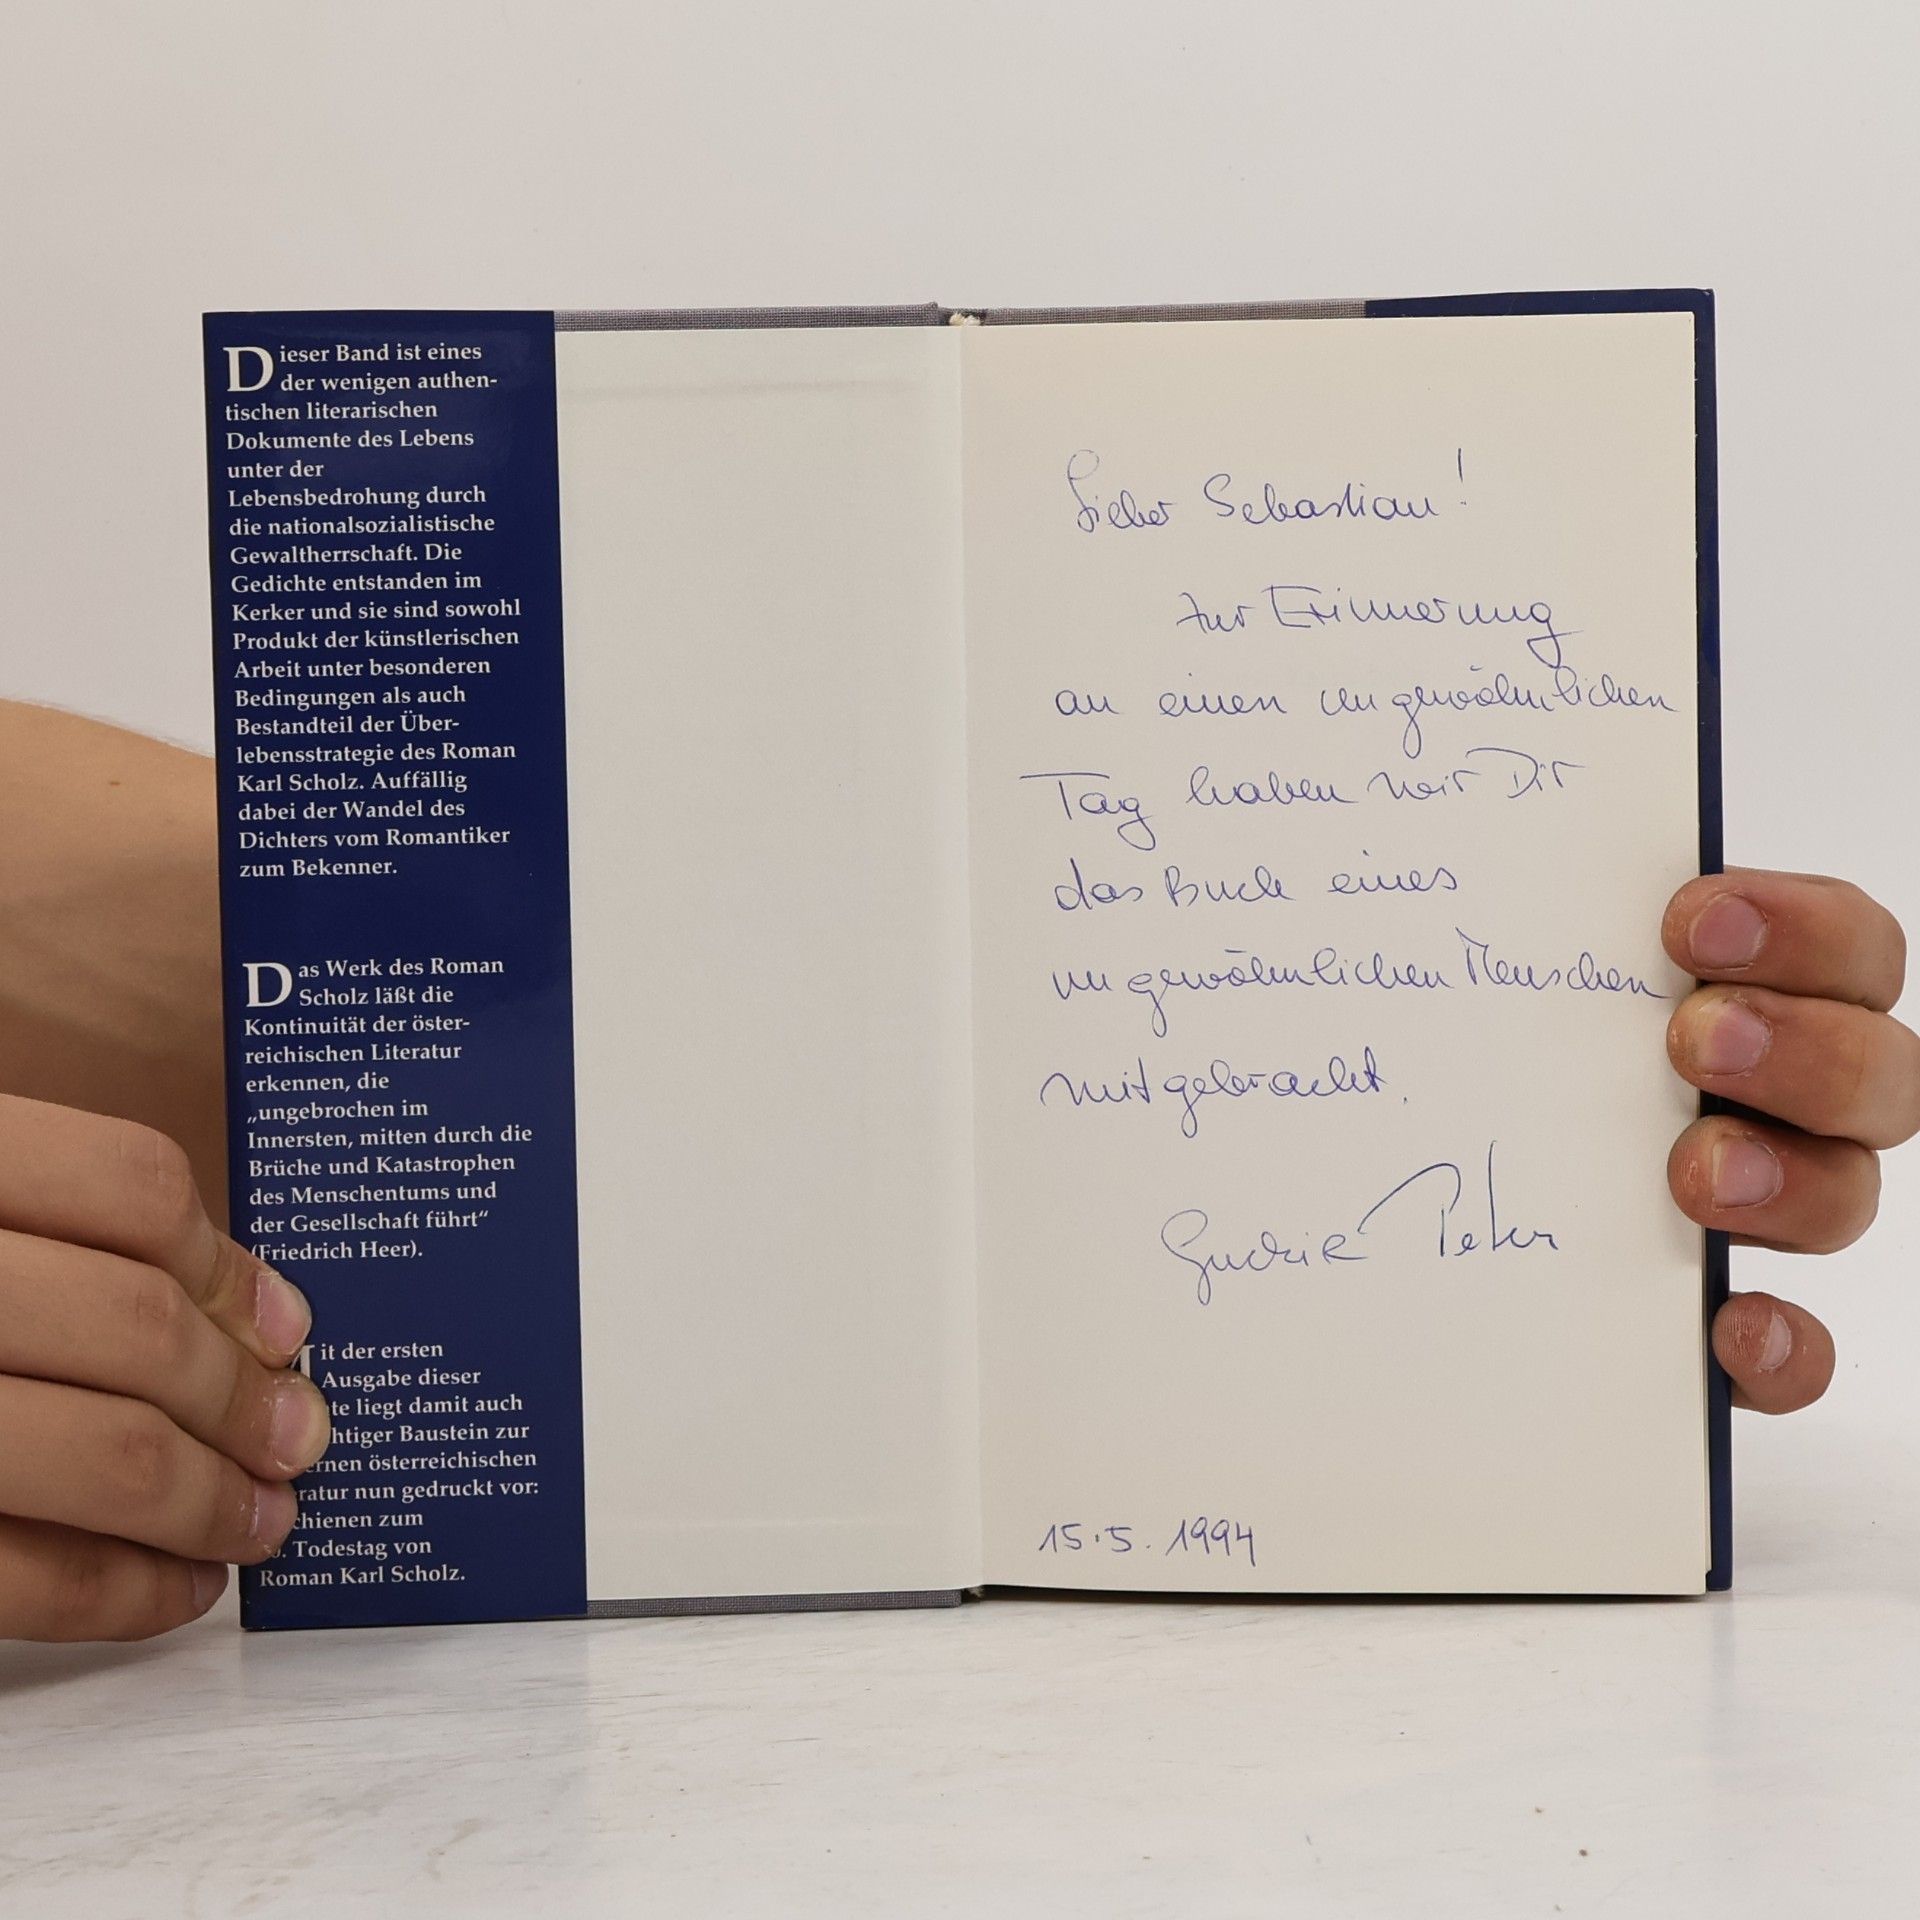 Dieser Band ist eines
der wenigen authen-
tischen literarischen
Dokumente des Lebens
unter der
Lebensbedrohung durch
die nationalsozialistische
Gewaltherrschaft. Die
Gedichte entstanden im
Kerker und sie sind sowohl
Produkt der künstlerischen
Arbeit unter besonderen
Bedingungen als auch
Bestandteil der Über-
lebensstrategie des Roman
Karl Scholz. Auffällig
dabei der Wandel des
Dichters vom Romantiker
zum Bekenner.
Das Werk des Roman
Scholz läßt die
Kontinuität der öster-
reichischen Literatur
erkennen, die
„ungebrochen im
Innersten, mitten durch die
Brüche und Katastrophen
des Menschentums und
der Gesellschaft führt“
(Friedrich Heer).
it der ersten
Ausgabe dieser
te liegt damit auch
htiger Baustein zur
ernen österreichischen
ratur nun gedruckt vor:
chienen zum
. Todestag von
Roman Karl Scholz.
Lieber Sebastian!
zur Erinnerung
an einen ungewöhnlichen
Tag haben wir Dir
das Buch eines
ungewöhnlichen Menschen
mitgebracht.
Peter
15.5.1994